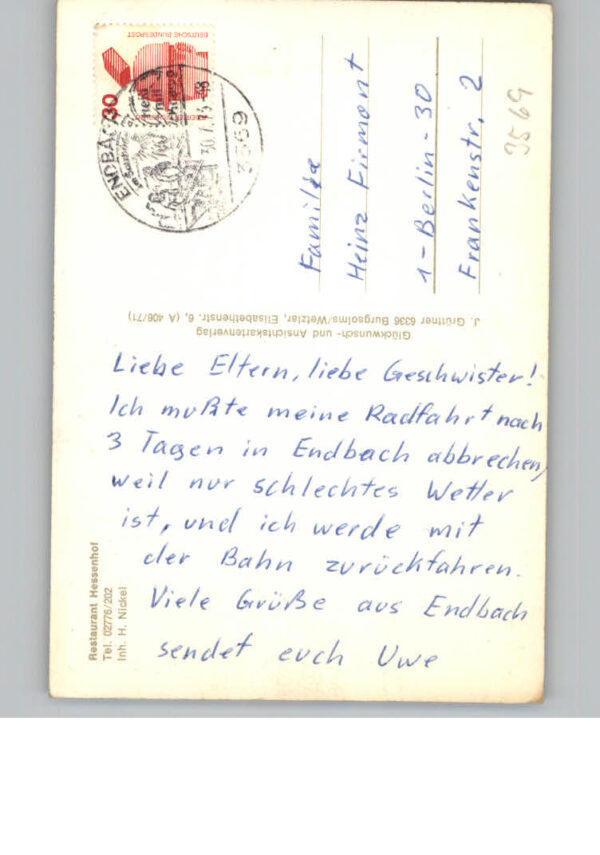 DEUTSCHE BUNDESPOST
30
ENDBACH
3569
Familie
Heinz Firmont
1-Berlin-30
Frankenstr. 2
3569
Glückwunsch- und Ansichtskartenverlag
J. Grüttner 6336 Burgsolms/Wetzlar, Elisabethenstr. 6, (A 408/71)
Liebe Eltern, liebe Geschwister!
Ich mußte meine Radfahrt nach
3 Tagen in Endbach abbrechen,
weil nur schlechtes Wetter
ist, und ich werde mit
der Bahn zurückfahren.
Viele Grüße aus Endbach
sendet euch Uwe
Restaurant Hessenhof
Tel. 02776/202
Inh. H. Nickel